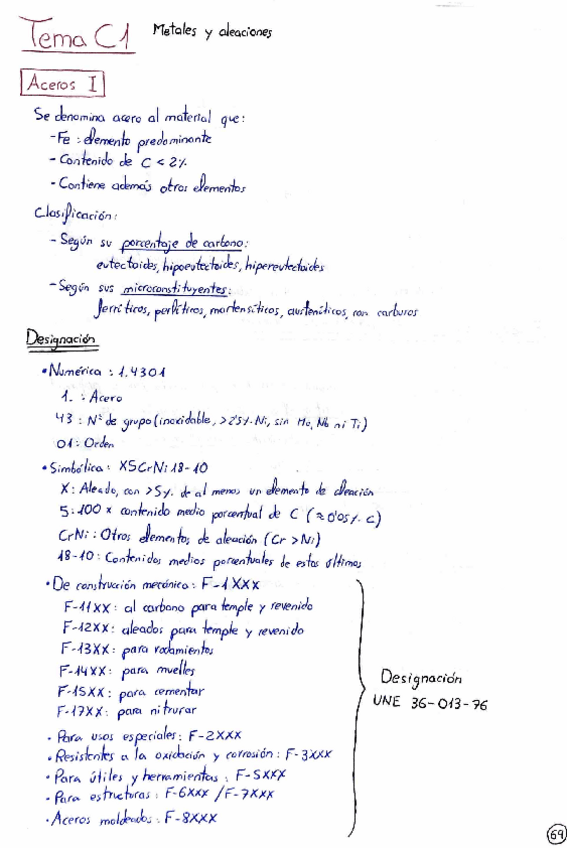 Tema C1 Metales y aleaciones
Aceros I
Se denomina acero al material que:
- Fe : elemento predominante
- Contenido de C < 2%
- Contiene además otros elementos
Clasificación:
- Según su porcentaje de carbono:
eutectoides, hipoeutectoides, hipereutectoides
- Según sus microconstituyentes:
ferríticos, perlíticos, martensíticos, austeníticos, con carburos
Designación
• Numérica : 1.4301
1. : Acero
43 : Nº de grupo (inoxidable, >2'5% Ni, sin Mo, Nb ni Ti)
01 : Orden
• Simbólica : X5CrNi 18-10
X: Aleado, con >5% de al menos un elemento de aleación
5: 100 x contenido medio porcentual de C (≈0'05% C)
CrNi : Otros elementos de aleación (Cr > Ni)
18-10 : Contenidos medios porcentuales de estos últimos
• De construcción mecánica : F-1XXX
F-11XX : al carbono para temple y revenido
F-12XX : aleados para temple y revenido
F-13XX : para rodamientos
F-14XX : para muelles
F-15XX : para cementar
F-17XX : para nitrurar
• Para usos especiales : F-2XXX
• Resistentes a la oxidación y corrosión : F-3XXX
• Para útiles y herramientas : F-5XXX
• Para estructuras : F-6XXX / F-7XXX
• Aceros moldeados : F-8XXX
Designación
UNE 36-013-76
69